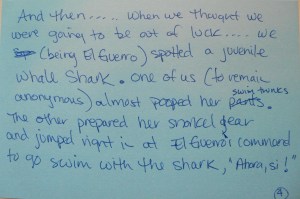 And then..... when we thought we
were going to be out of luck..... we
(being El Guerro) spotted a juvenile
whale shark. One of us (to remain
anonymous) almost pooped her swim trunks pants.
The other prepared her snorkel gear
and jumped right in at El Guerro's command
to go swim with the shark, "Ahora, si!"
9